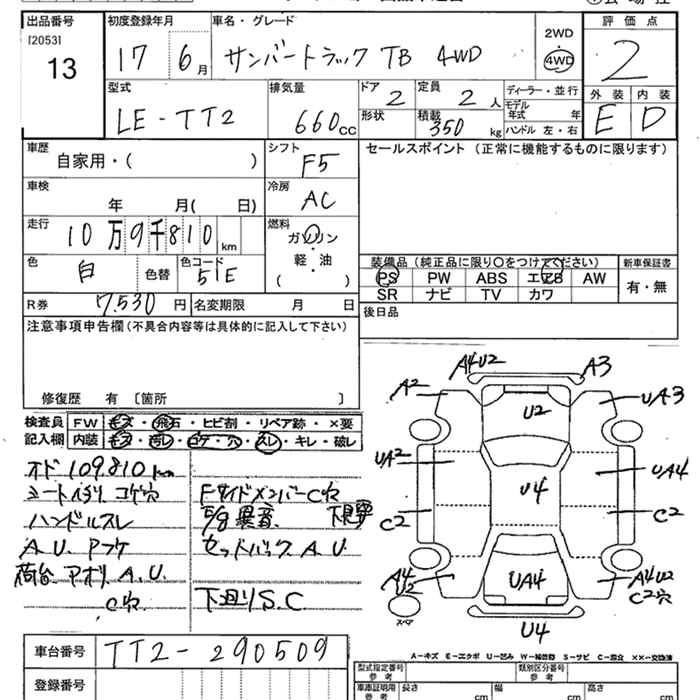 出品番号 初度登録年月 車名・グレード 評価点
[2053] 13 17 6月 サンバートラック TB 4WD 2WD 4WD 2
型式 排気量 ドア 2 定員 2人 ディーラー・並行 外装 内装
LE-TT2 660cc 形状 積載 350kg モデル年式 年 ハンドル 左・右 E D
車歴 シフト セールスポイント (正常に機能するものに限ります)
自家用・( ) F5
車検 冷房
年 月( 日) AC
走行 燃料
10万9千810km ガソリン・軽・油 ( )
色 色替 色コード 装備品 (純正品に限り○をつけてください) 新車保証書
白 51E PS PW ABS エアB AW 有・無
SR ナビ TV カワ
R券 7,530円 名変期限 月 日 後日品
注意事項申告欄(不具合内容等は具体的に記入して下さい)
修復歴 有 〔箇所 〕
検査員 FW キズ・飛石・ヒビ割・リペア跡・×要
記入欄 内装 キズ・汚レ・コゲ・穴・スレ・キレ・破レ
オド 109.810km
シートイタミ コゲ穴 FサイドメンバーC穴
ハンドルスレ 異音 下見
A.U. セットバック A.U
荷台 アオリ A.U.
C穴 下廻りS.C
A4U2 A3
A2 U2 UA3
UA2 U4 UA4
C2 C2
A4U2 UA4 A4U2
C2穴
スペア U4
A-キズ E-エクボ U-凹ミ W-補修跡 S-サビ C-腐食 ××-交換済
車台番号 TT2-290509 型式指定番号 参考 類別区分番号 参考
登録番号 車庫証明用 参考 長さ cm 幅 cm 高さ cm